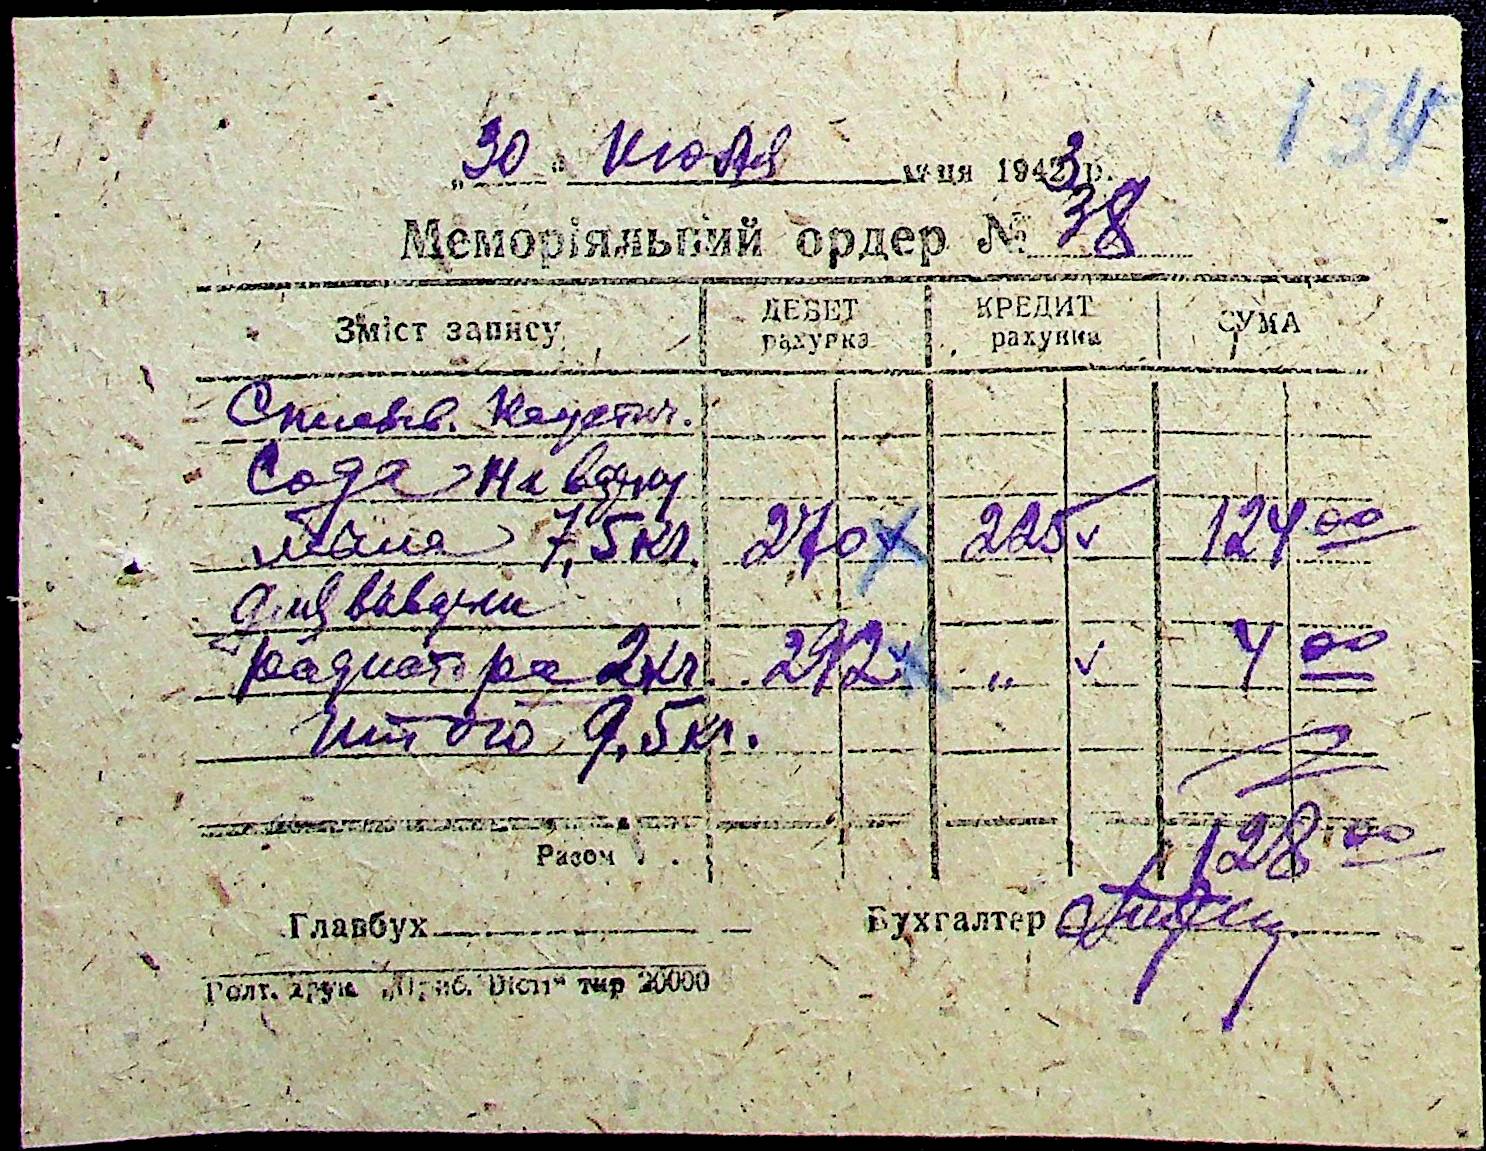 134
„30“ Июля м-ця 1943 р.
Меморіяльний ордер № 38
Зміст запису ДЕБЕТ рахунка КРЕДИТ рахунка СУМА
Списыв. Каустич.
Сода на варку
мыла 7,5 кг. 270 225 124 00
для выварки
радиатора 2 кг. 292 „ 4 00
Итого 9,5 кг.
Разом 128 00
Главбух Бухгалтер
тир 20000